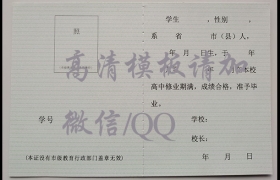 学生　　，性别　，
照
系　　省　　市（县）人，
年　月　日生，于　年
高清模板请加
年　月在本校
高中修业期满，成绩合格，准予毕
业。
微信/QQ
学号
学校：
校长：
（本证没有市级教育行政部门盖章无效）
年　月　日